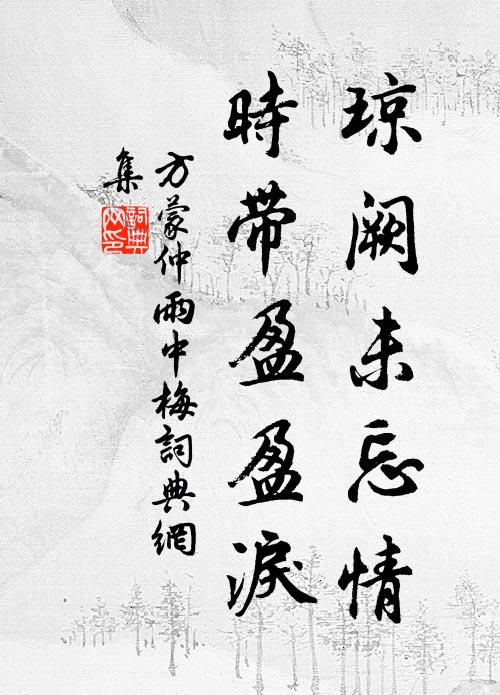 琼阙未忘情
時帶盈盈淚
方蒙仲雨中梅詞典網
集
詞典
网印